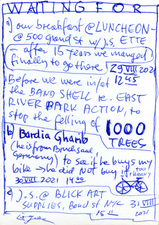 WAITING FOR
a) our breakfast @ LUNCHEON-
@ 500 grand st w/ J.S ETTE
after 15 years we managed
finally to go there 29 VIII 2021
12 45
Before we were in/at
the BAND SHELL R. EAST
RIVER PARK ACTION, to
stop the felling of
1000
TREES
b) Bardia Gharib
(he is from
Germany) to see if he buys my
bike → he did NOT buy
30 VIII 2021
c) J.S. @ BLICK ART
SUPPLIES, Bond st NYC 31 VIII
2021